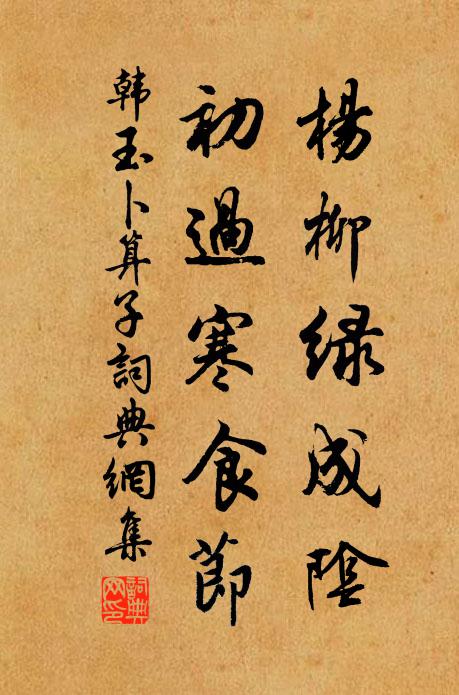 楊柳緑成陰
初過寒食節
韩玉卜算子詞典網集
詞典網印